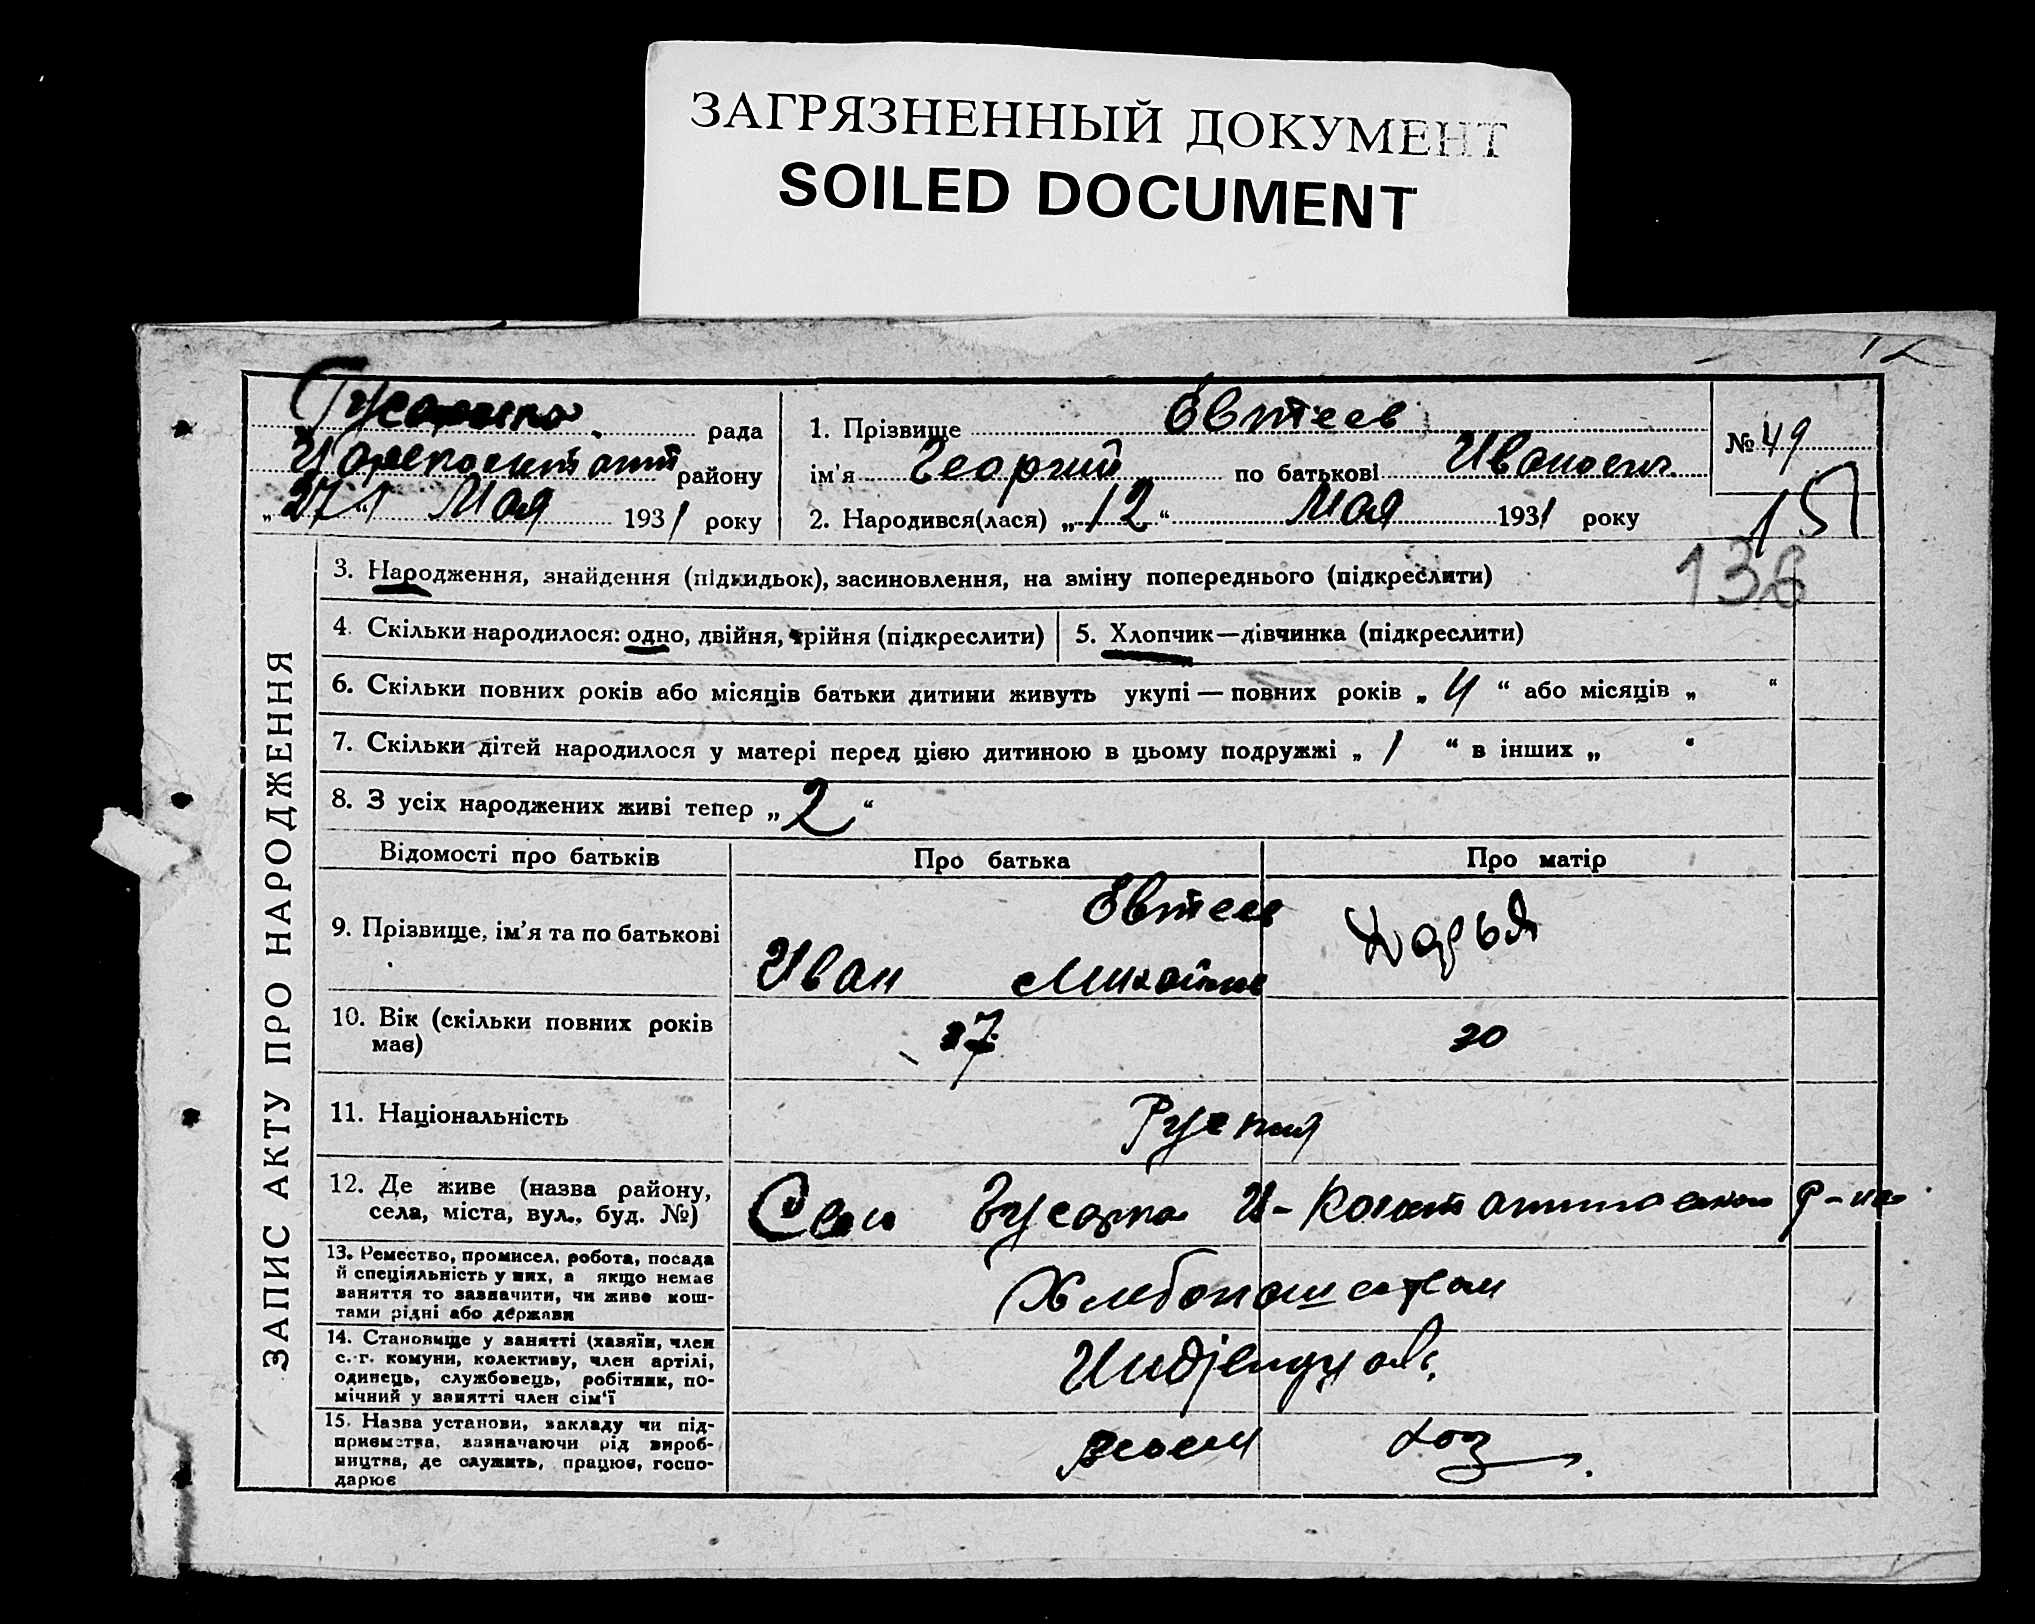 ЗАГРЯЗНЕННЫЙ ДОКУМЕНТ
SOILED DOCUMENT
рада
району
„27“ Мая 1931 року
1. Прізвище Евтеев
ім'я Георгий по батькові Иванович
2. Народився(лася) „12“ Мая 1931 року
№ 49
15
136
ЗАПИС АКТУ ПРО НАРОДЖЕННЯ
3. Народження, знайдення (підкидьок), засиновлення, на зміну попереднього (підкреслити)
4. Скільки народилося: одно, двійня, трійня (підкреслити)
5. Хлопчик—дівчинка (підкреслити)
6. Скільки повних років або місяців батьки дитини живуть укупі — повних років „ 4 “ або місяців „ “
7. Скільки дітей народилося у матері перед цією дитиною в цьому подружжі „ 1 “ в інших „ “
8. З усіх народжених живі тепер „ 2 “
Відомості про батьків
Про батька
Про матір
9. Прізвище, ім'я та по батькові
Евтеев
Иван
Дарья
10. Вік (скільки повних років
має)
20
11. Національність
12. Де живе (назва району,
села, міста, вул., буд. №)
р-на
13. Ремество, промисел, робота, посада
й спеціяльність у них, а якщо немає
заняття то зазначити, чи живе кош-
тами рідні або держави
14. Становище у занятті (хазяїн, член
с.-г. комуни, колективу, член артілі,
одинець, службовець, робітник, по-
мічний у занятті член сім'ї
15. Назва установи, закладу чи під-
приємства, зазначаючи рід вироб-
ництва, де служить, працює, госпо-
дарює
хоз